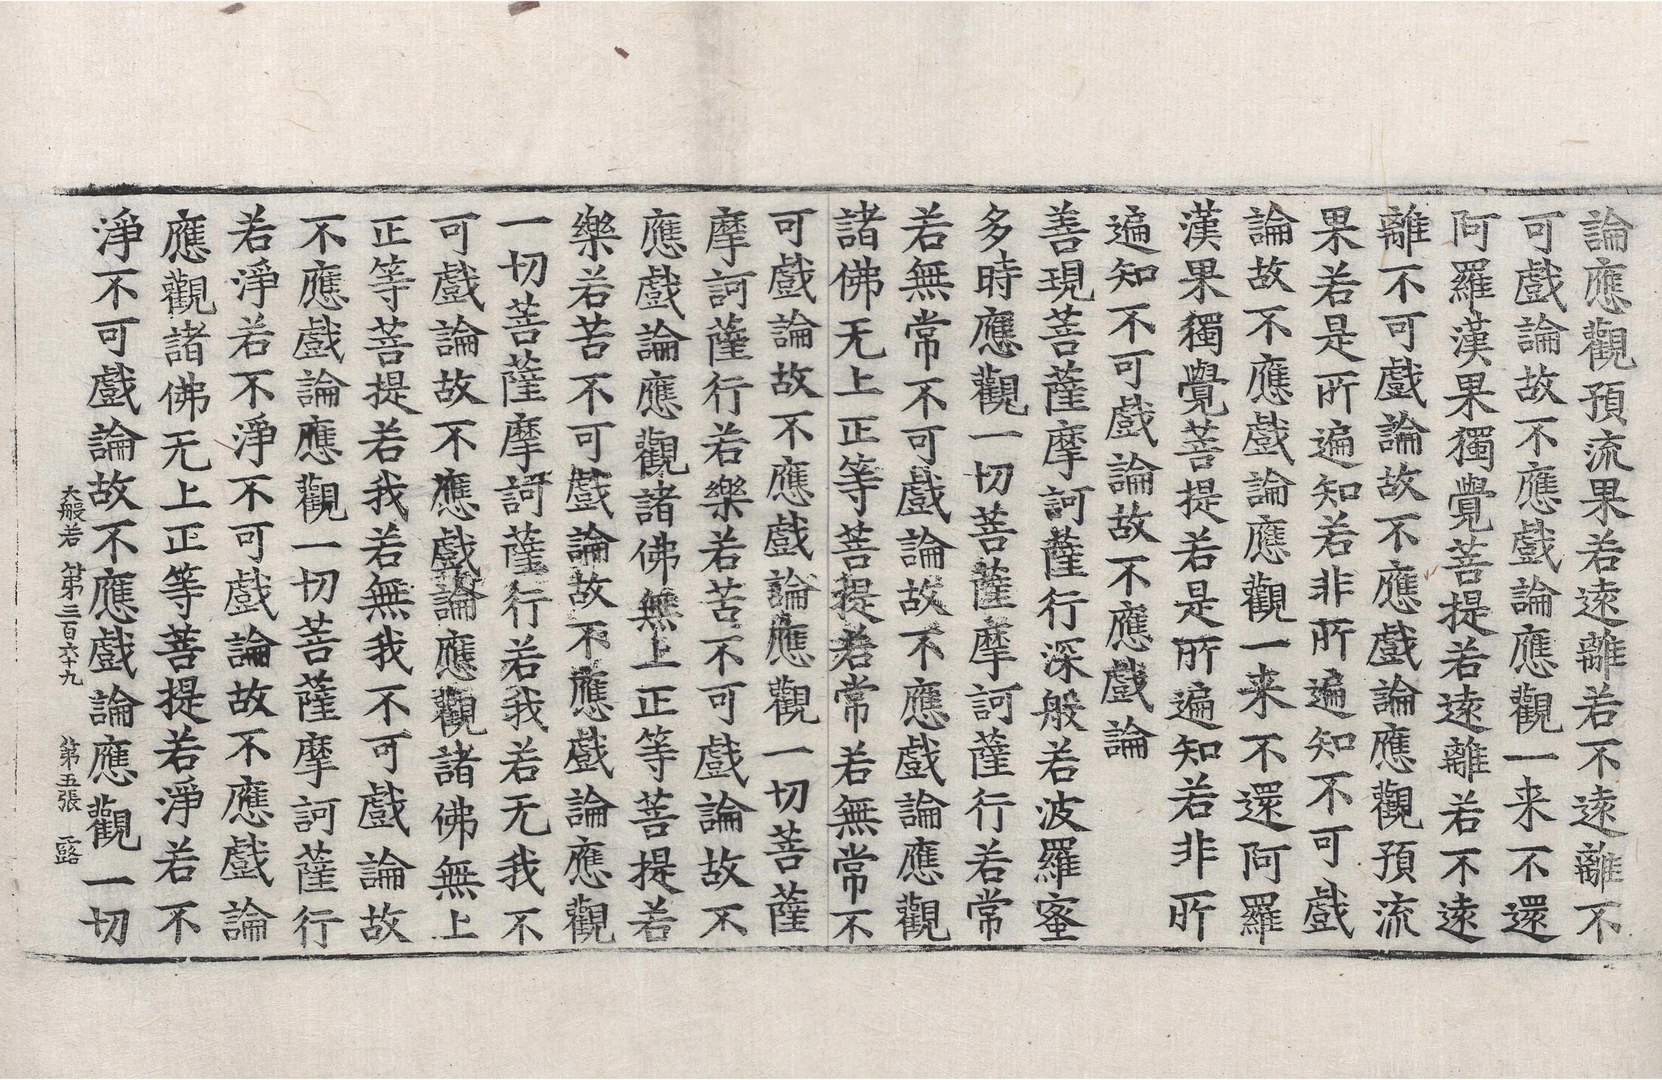 論應觀預流果若遠離若不遠離不
可戲論故不應戲論應觀一来不還
阿羅漢果獨覺菩提若遠離若不遠
離不可戲論故不應戲論應觀預流
果若是所遍知若非所遍知不可戲
論故不應戲論應觀一来不還阿羅
漢果獨覺菩提若是所遍知若非所
遍知不可戲論故不應戲論
善現菩薩摩訶薩行深般若波羅蜜
多時應觀一切菩薩摩訶薩行若常
若無常不可戲論故不應戲論應觀
諸佛无上正等菩提若常若無常不
可戲論故不應戲論應觀一切菩薩
摩訶薩行若樂若苦不可戲論故不
應戲論應觀諸佛無上正等菩提若
樂若苦不可戲論故不應戲論應觀
一切菩薩摩訶薩行若我若无我不
可戲論故不應戲論應觀諸佛無上
正等菩提若我若無我不可戲論故
不應戲論應觀一切菩薩摩訶薩行
若淨若不淨不可戲論故不應戲論
應觀諸佛无上正等菩提若淨若不
淨不可戲論故不應戲論應觀一切
大般若 第三百六十九 第五張 露